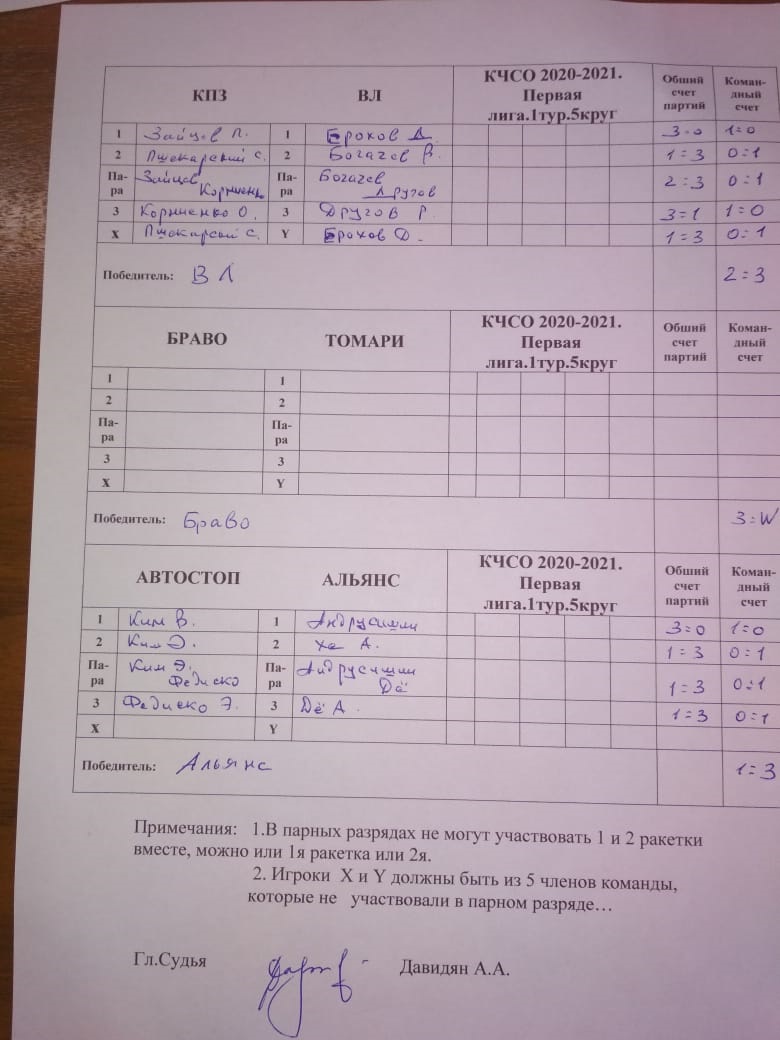 КПЗ ВЛ КЧСО 2020-2021. Первая лига.1тур.5круг Общий счет партий Коман-дный счет
1 Зайцев П. 1 Ерохов Д. 3=0 1=0
2 Пшекарский С. 2 Богачев В. 1=3 0=1
Па-ра Зайцев Корниенко Па-ра Богачев Другов 2=3 0=1
3 Корниенко О. 3 Другов Р. 3=1 1=0
X Пшекарский С. Y Ерохов Д. 1=3 0=1
Победитель: ВЛ 2=3
БРАВО ТОМАРИ КЧСО 2020-2021. Первая лига.1тур.5круг Общий счет партий Коман-дный счет
1 1
2 2
Па-ра Па-ра
3 3
X Y
Победитель: Браво 3=W
АВТОСТОП АЛЬЯНС КЧСО 2020-2021. Первая лига.1тур.5круг Общий счет партий Коман-дный счет
1 Ким В. 1 Андрусишин 3=0 1=0
2 Ким Э. 2 Хе А. 1=3 0=1
Па-ра Ким Э. Федиско Па-ра Андрусишин Дё 1=3 0=1
3 Федиско Э. 3 Дё А. 1=3 0=1
X Y
Победитель: Альянс 1=3
Примечания: 1.В парных разрядах не могут участвовать 1 и 2 ракетки
вместе, можно или 1я ракетка или 2я.
2. Игроки X и Y должны быть из 5 членов команды,
которые не участвовали в парном разряде…
Гл.Судья Давидян А.А.